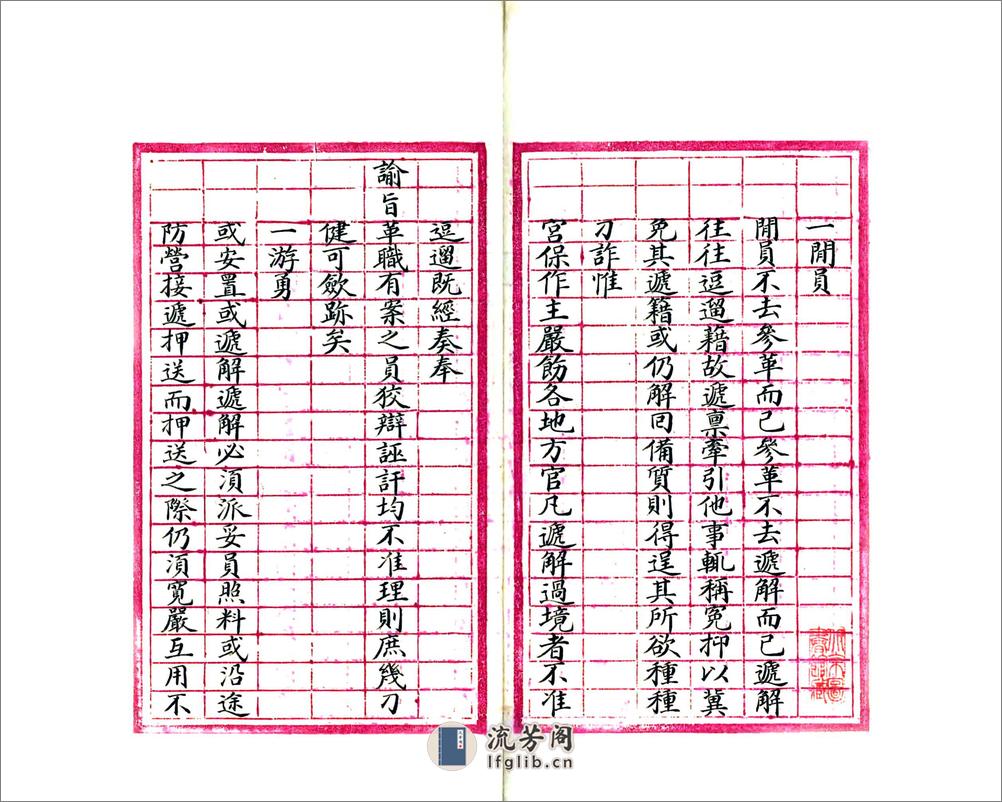 一閒員
閒員不去參革而已參革不去遞解而已遞解
往往逗遛藉故遞禀牽引他事輒稱冤抑以冀
免其遞籍或仍解回備質則得逞其所欲種種
刁詐惟
宮保作主嚴飭各地方官凡遞解過境者不准
逗遛既經奏奉
諭旨革職有案之員狡辯誣訐均不准理則庶幾刁
健可斂跡矣
一游勇
或安置或遞解遞解必須派妥員照料或沿途
防營接遞押送而押送之際仍須寬嚴互用不
流芳阁
lfglib.cn